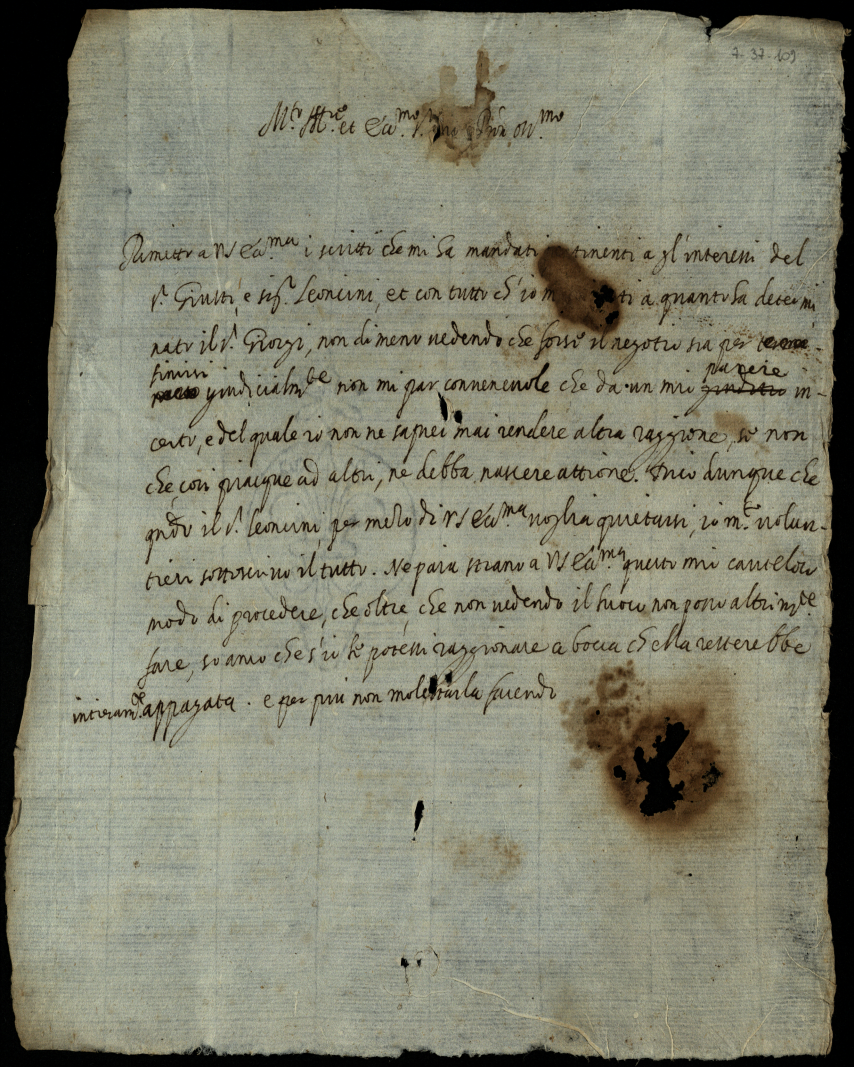 7-37-109
M.to Ill.re et Ecc.mo S.r mio P.ron oss.mo
Rimetto a VS Ecc.ma i scritti che mi ha mandati attinenti a gl'interessi del
s.r Giusti, e sig.r Leoncini, et con tutto ch'io m ti a quanto ha determi
nato il s.r Giorgi, non dimeno vedendo che forse il negotio sia per
finirsi giudicialm.te non mi par convenevole che da un mio parere in-
certo, e del quale io non ne saprei mai rendere altra raggione, se non
che, così piacque ad altri, ne debba nascere attione. dunque che
q.ndo il s.r Leoncini per mezo di VS Ecc.ma voglia quietarsi, io m.to volen-
tieri sottoscrivo il tutto. Ne paia strano a VS Ecc.ma questo mio cauteloso
modo di procedere, che oltre che non vedendo il fuoco non posso altrim.te
fare, so anco che s'io le potessi raggionare a bocca ch'ella resterebbe
intieram.te appagata. e per più non molestarla facendo